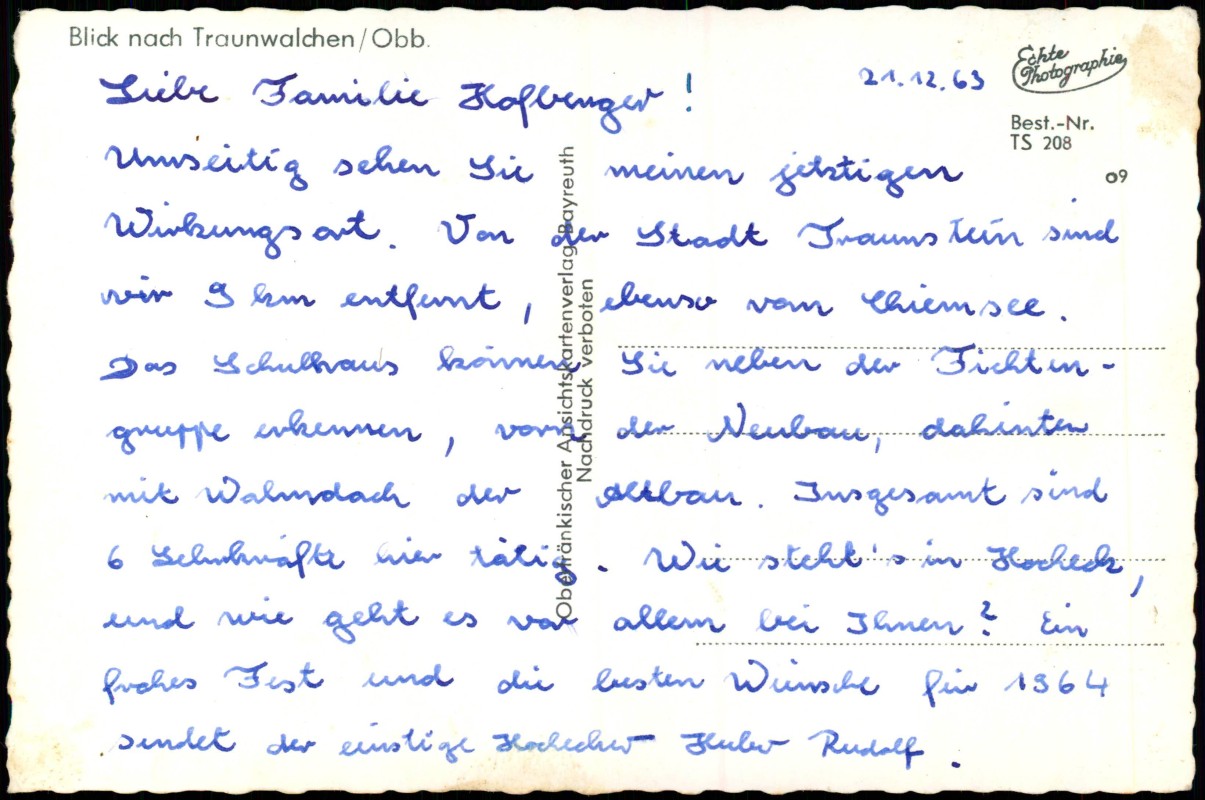 Blick nach Traunwalchen/Obb.
Echte Photographie
21.12.63
Best.-Nr.
TS 208
09
Liebe Familie Hofberger!
Umseitig sehen Sie meinen jetztigen
Wirkungsort. Von der Stadt Traunstein sind
wir 9 km entfernt, ebenso vom Chiemsee.
Das Schulhaus können Sie neben der Fichten-
gruppe erkennen, vorn der Neubau, dahinter
mit Walmdach der Altbau. Insgesamt sind
6 Schulkräfte hier tätig. Wie steht's in Hocheck,
und wie geht es vor allem bei Ihnen? Ein
frohes Fest und die besten Wünsche für 1964
sendet der einstige Hochecker Huber Rudolf.
Oberfränkischer Ansichtskartenverlag Bayreuth
Nachdruck verboten